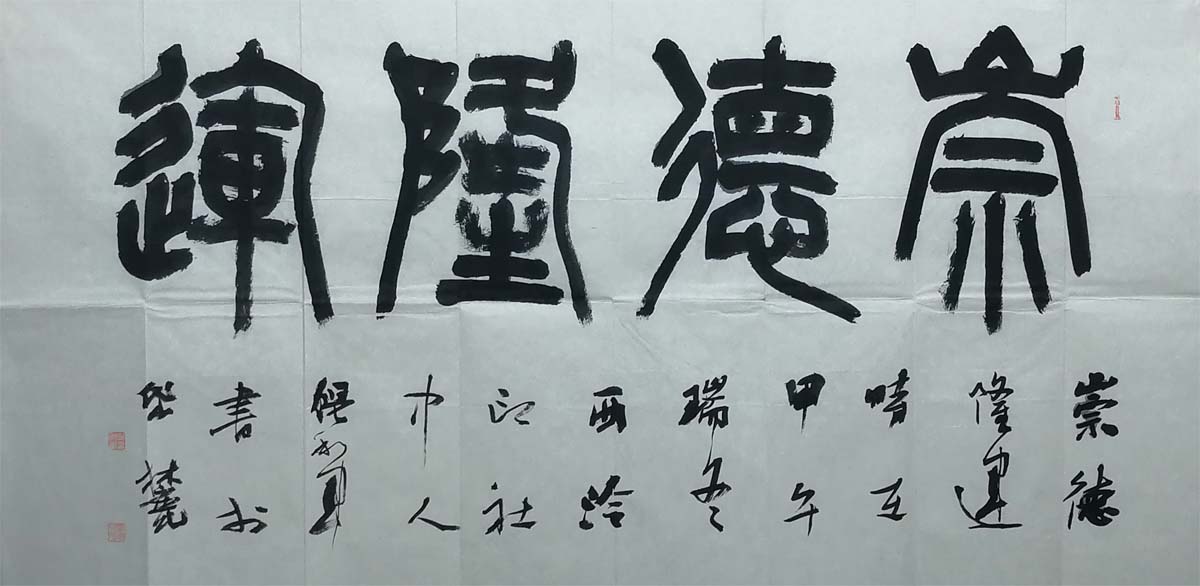 崇德隆運
崇德
隆運
時在
甲午
瑞冬
西泠
印社
中人
利軍
書於
岳麓